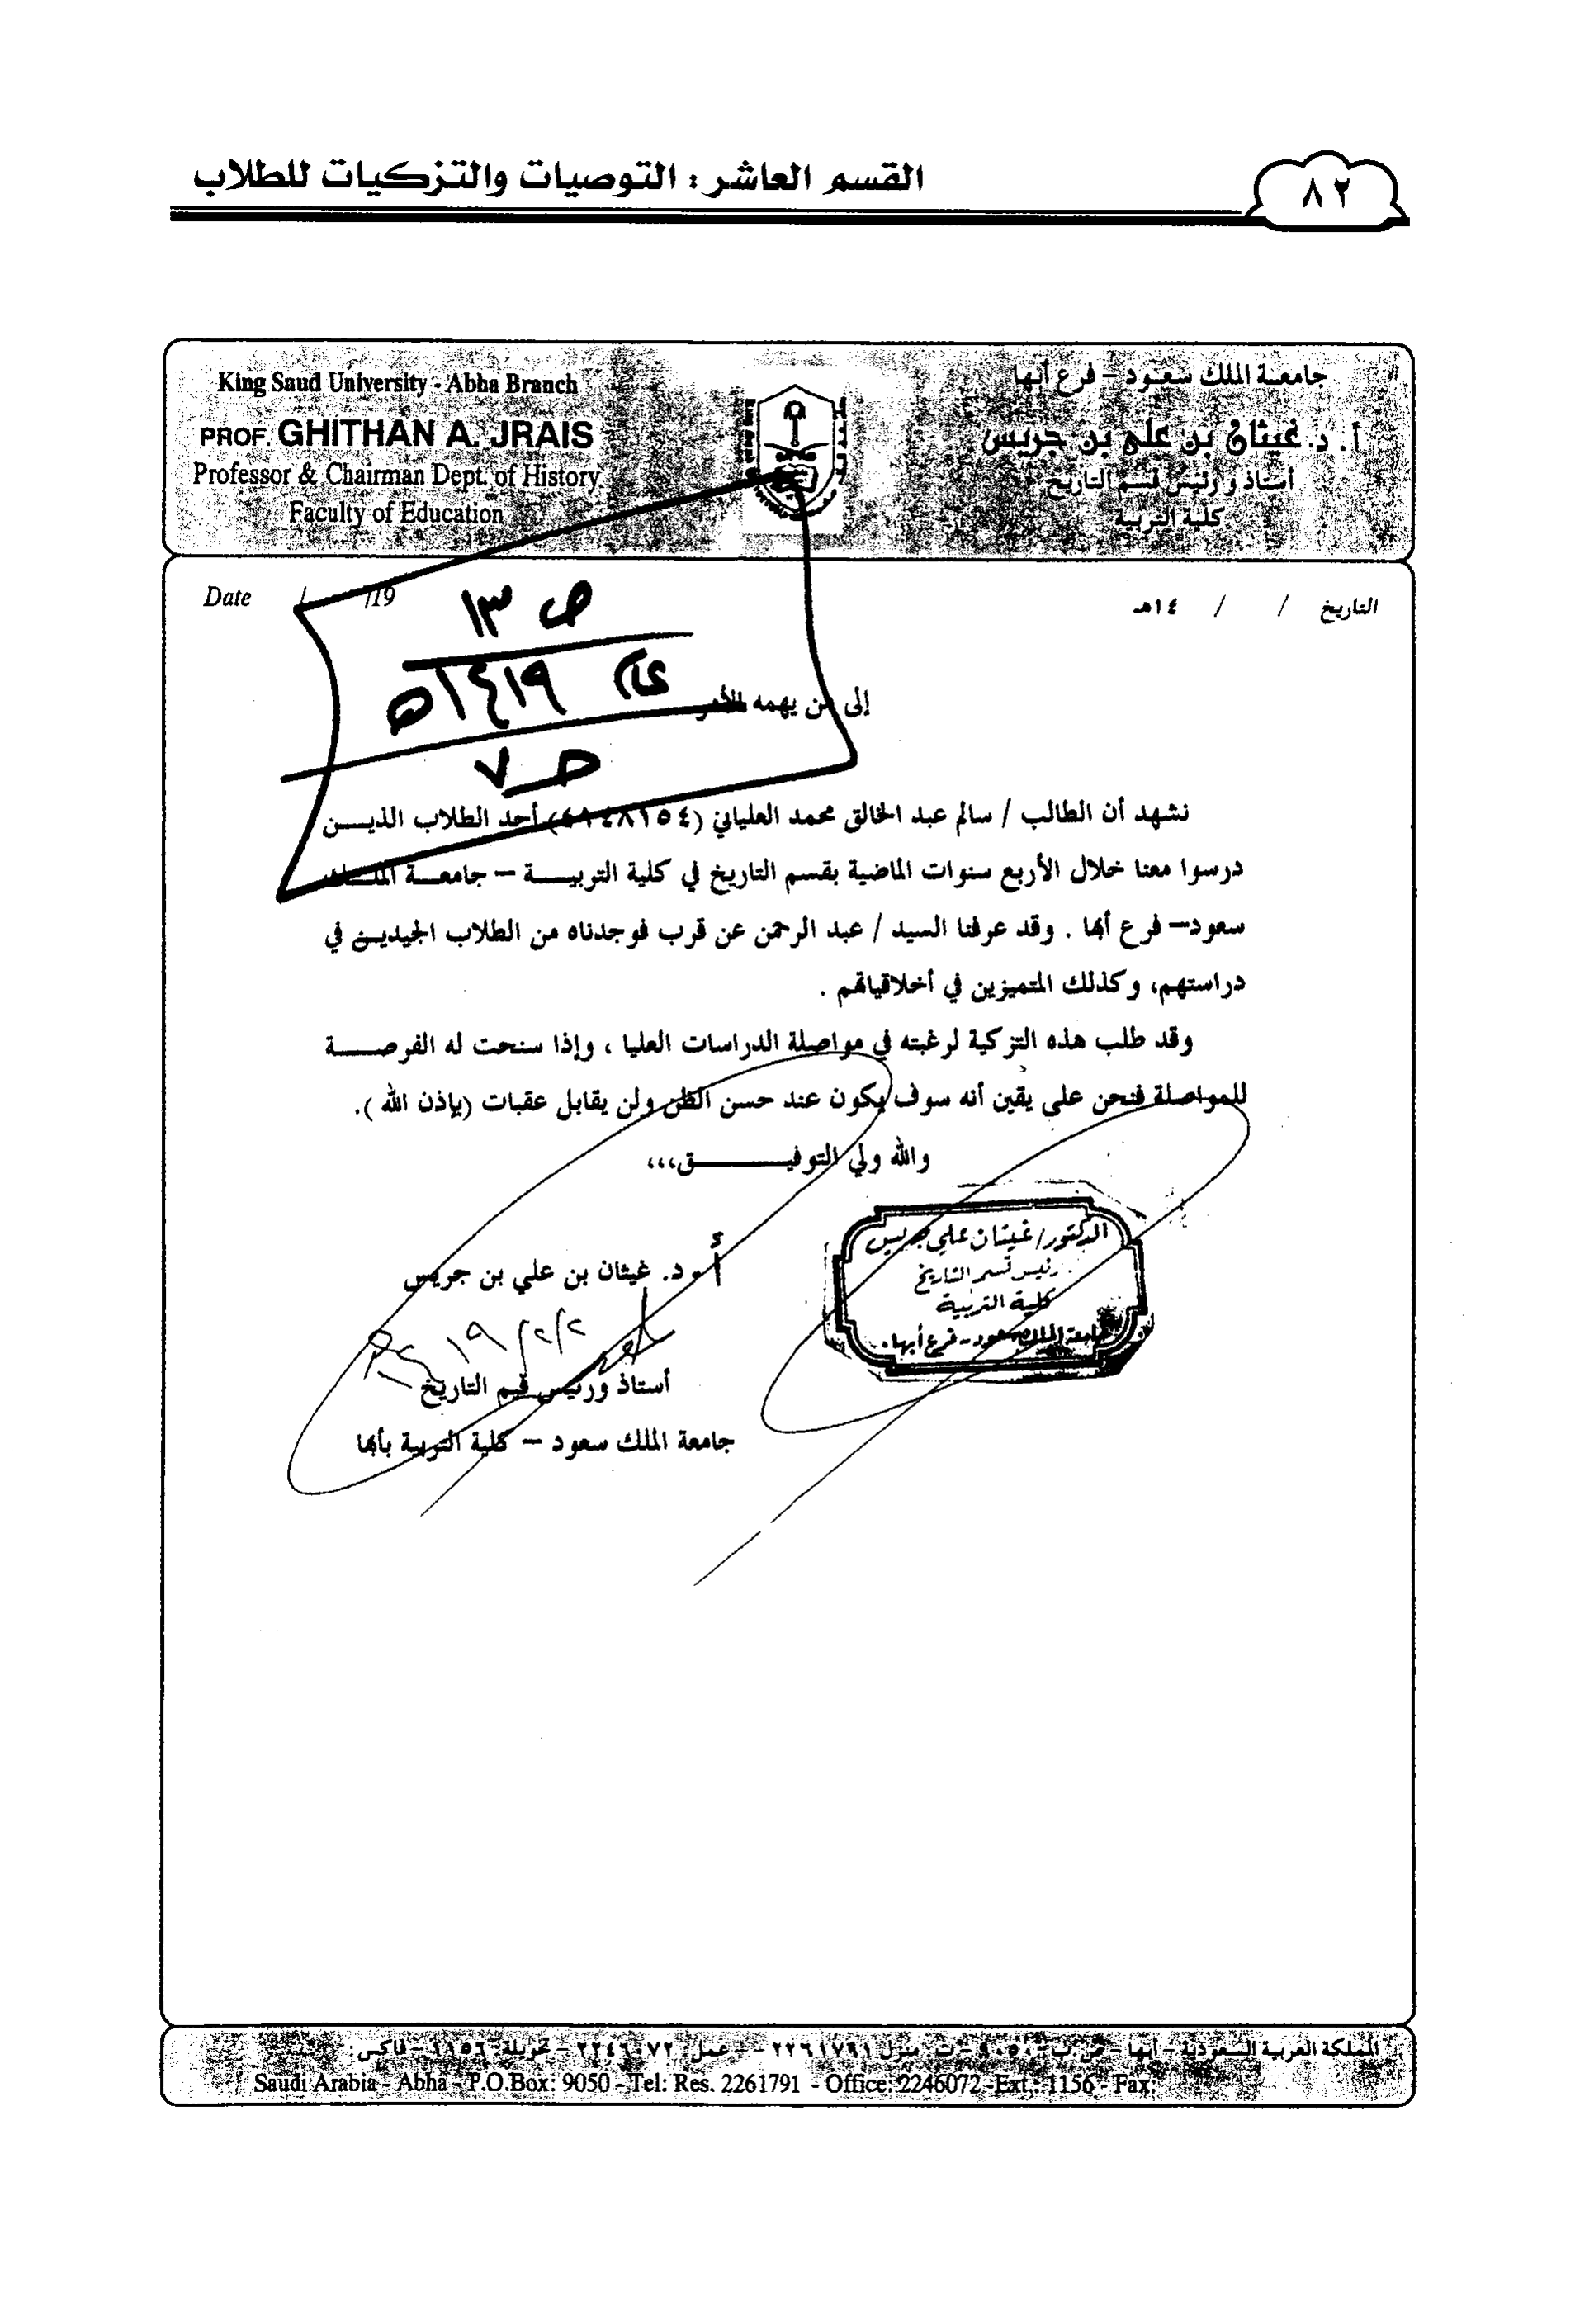 القسم العاشر : التوصيات والتزكيات للطلاب
٨٢
King Saud University - Abha Branch
PROF. GHITHAN A. JRAIS
Professor & Chairman Dept. of History
Faculty of Education
جامعة الملك سعود - فرع أبها
أ. د. غيثان بن علي بن جريس
أستاذ و رئيس قسم التاريخ
كلية التربية
Date / /19
التاريخ / / ١٤هـ
ص ١٣
١٤١٩هـ
ح ٧
إلى من يهمه الأمر
نشهد أن الطالب / سالم عبد الخالق محمد العلياني (٤٩٤٨١٥٤) أحد الطلاب الذيـــن
درسوا معنا خلال الأربع سنوات الماضية بقسم التاريخ في كلية التربيـــة – جامعـــة الملـــك
سعود– فرع أبها . وقد عرفنا السيد / عبد الرحمن عن قرب فوجدناه من الطلاب الجيديـن في
دراستهم، وكذلك المتميزين في أخلاقياتهم .
وقد طلب هذه التزكية لرغبته في مواصلة الدراسات العليا ، وإذا سنحت له الفرصـــة
للمواصلة فنحن على يقين أنه سوف يكون عند حسن الظن ولن يقابل عقبات (بإذن الله ).
والله ولي التوفيـــــــق،،،
الدكتور/ غيثان علي جريس
رئيس قسم التاريخ
كلية التربية
جامعة الملك سعود - فرع أبها.
أ. د. غيثان بن علي بن جريس
١٩/٢/٢
أستاذ ورئيس قسم التاريخ
جامعة الملك سعود – كلية التربية بأبها
المملكة العربية السعودية - أبها - ص.ب - ٩٠٥٠ - ت منزل ٢٢٦١٧٩١ - عمل: ٢٢٤٦٠٧٢ - تحويلة: ١١٥٦ - فاكس:
Saudi Arabia - Abha - P.O.Box: 9050 - Tel: Res. 2261791 - Office: 2246072 -Ext.: 1156 - Fax: